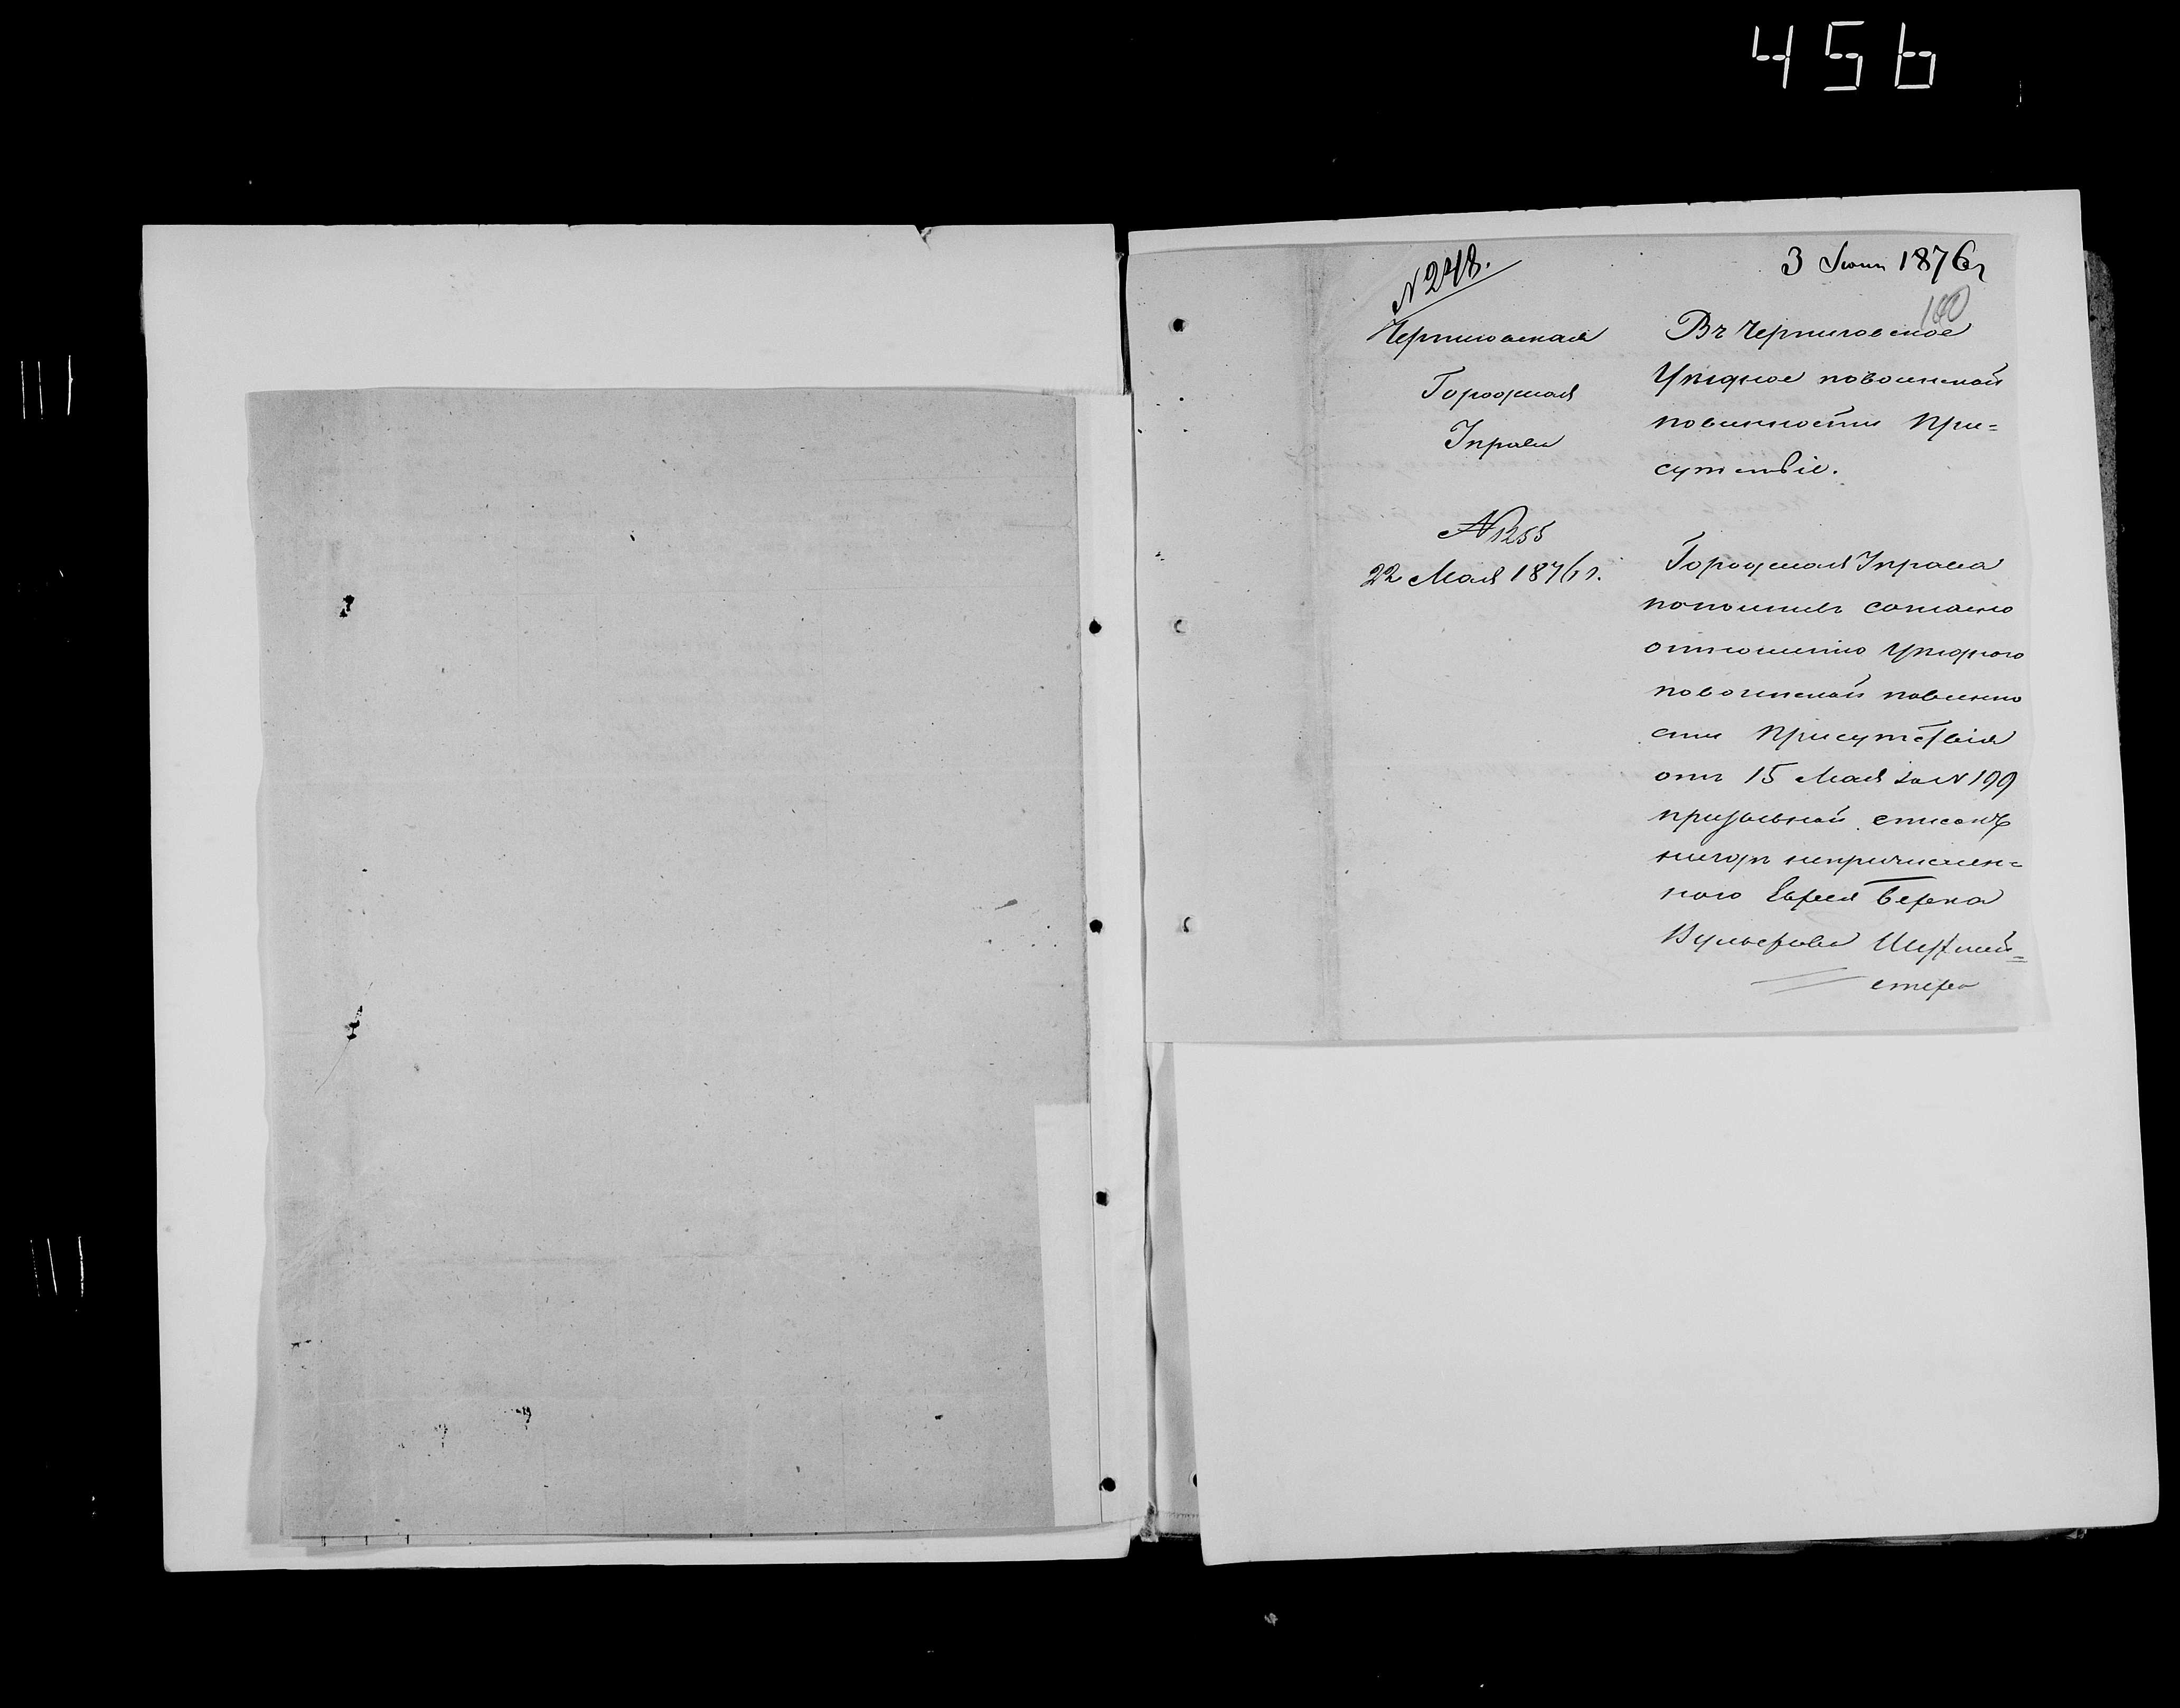 456
№ 248.
3 Іюня 1876 г
160
Черниговская
Городская
Управа
№ 1255
22 Мая 1876 г.
Въ Черниговское
Уѣздное по воинской
повинности При=
сутствіе.
Городская Управа
согласно
отношенію Уѣзднаго
по воинской повинно
сти Присутствія
отъ 15 Мая за № 199
призывной списокъ
непричислен=
наго Еврея Берка
Вульфова
стера